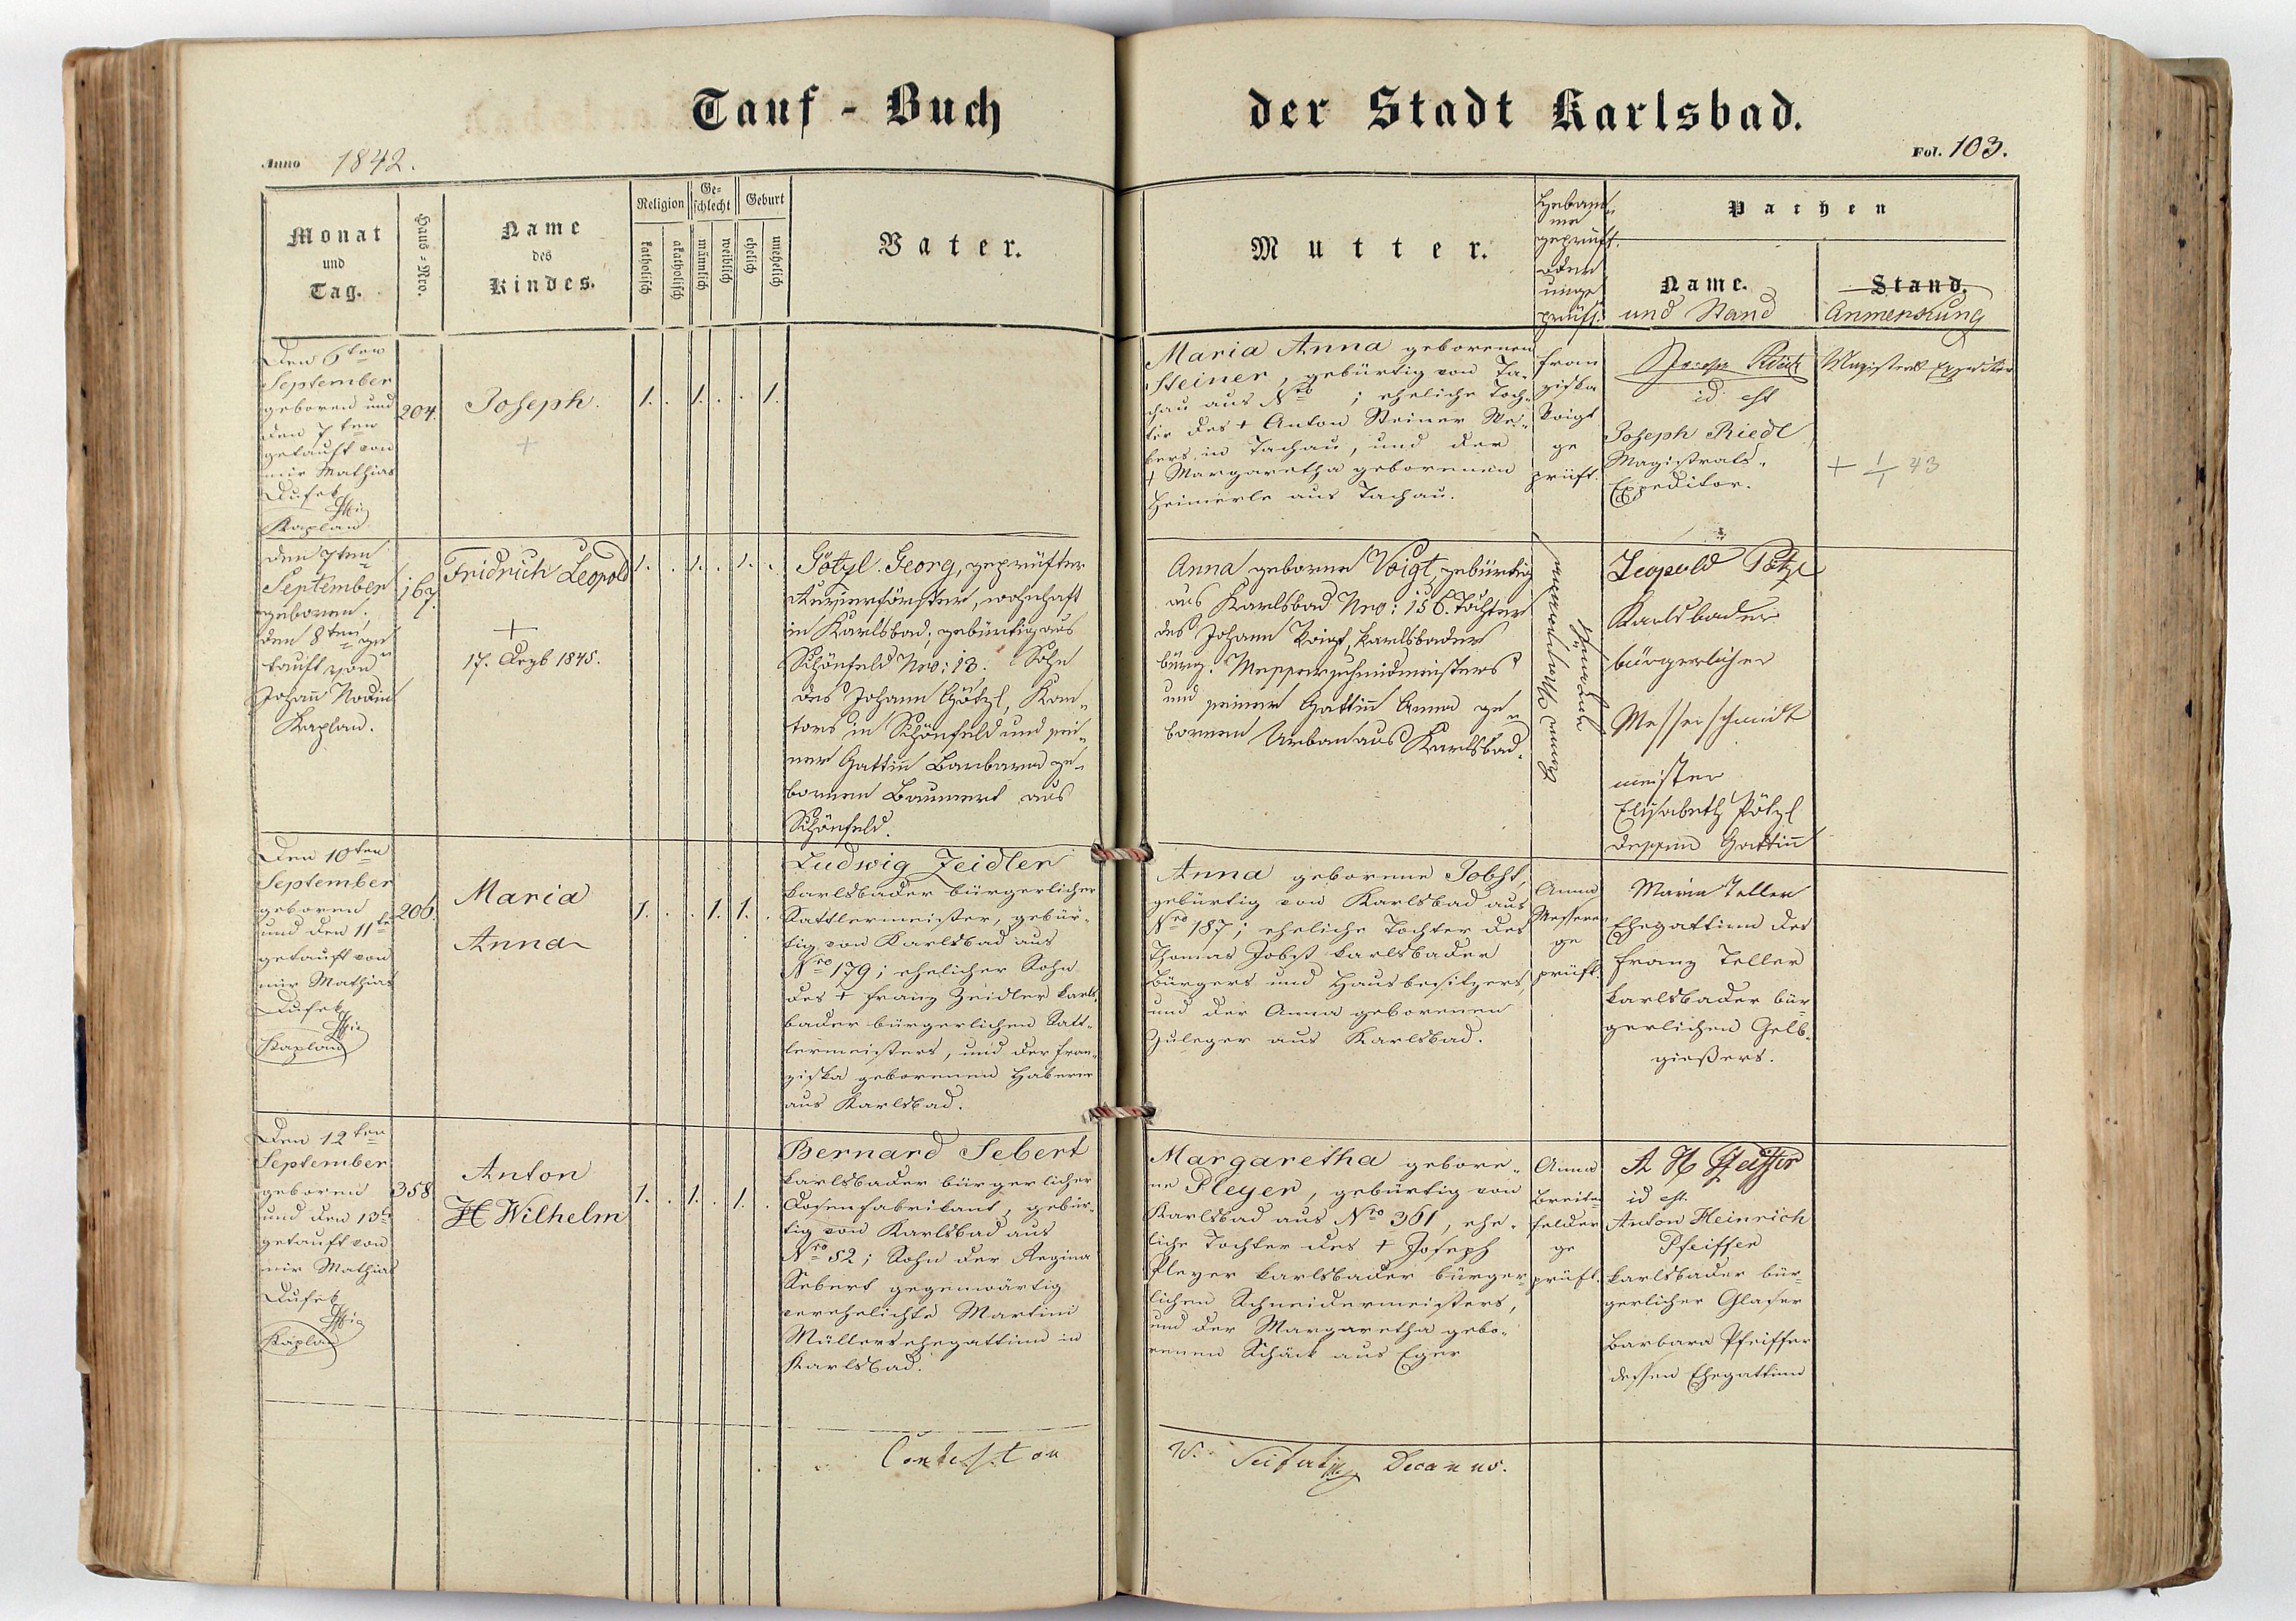 Tauf - Buch der Stadt Karlsbad.
Anno 1842.
Fol. 103.
Monat
und
Tag.
Haus-Nro.
Name
des
Kindes.
Religion
katholisch
akatholisch
Ge-
schlecht
männlich
weiblich
Geburt
ehelich
unehelich
Vater.
Mutter.
Hebam-
me
geprüft
oder
unge
prüft.
Pathen
Name.
und Stand
Stand.
Anmerkung
Den 6ten
September
geboren und
den 7ten
getauft von
mir Mathias
Dufek
Kaplan
204.
Joseph.
+
1. . 1. . . 1.
Maria Anna geborenen
Steiner, gebürtig von Ta-
chau aus Nro ; eheliche Toch-
ter des + Anton Steiner We-
bers in Tachau, und der
+ Margaretha geborenen
Heimerle aus Tachau.
Fran
ziska
Voigt
ge
prüft.
id est
Joseph Riedl
Magistrats-
Expeditor.
Magistrats Expeditor
+ 1/1 43
den 7ten
September
geboren.
den 8ten ge
tauft von
Johann
Kaplan.
167.
Fridrich Leopold
+
17. 1845.
1. . 1. . 1. .
Götzl Georg, geprüfter
Revierförster, wohnhaft
in Karlsbad, gebürtig aus
Schönfeld Nro: 13. Sohn
des Johann Götzl, Kan-
tors in Schönfeld und sei-
ner Gattin Barbara ge-
bornen Baumert aus
Schönfeld.
Anna geborne Voigt, gebürtig
aus Karlsbad Nro: 156. Tochter
des Johann Voigt, Karlsbader
bürg. Messerschmidmeisters
und seiner Gattin Anna ge-
bornen Urban aus Karlsbad.
Leopold Pötzl
Karlsbader
bürgerlicher
Messerschmidt
meister
Elisabeth Pötzl
dessen Gattin
Den 10ten
September
geboren
und den 11te
getauft von
mir Mathias
Dufek
Kaplan
206.
Maria
Anna
1. . . 1. 1. .
Ludwig Zeidler
karlsbader bürgerlicher
Sattlermeister, gebür-
tig von Karlsbad aus
Nro 179; ehelicher Sohn
des + Franz Zeidler karls-
bader bürgerlichen Satt-
lermeisters, und der Fran-
ziska geborenen Haberer
aus Karlsbad.
Anna geborene Jobst,
gebürtig von Karlsbad aus
Nro 187; eheliche Tochter des
Thomas Jobst karlsbader
Bürgers und Hausbesitzers,
und der Anna geborenen
Zuleger aus Karlsbad.
Anna
Messerer
ge
prüft.
Maria Teller
Ehegattinn des
Franz Teller
karlsbader bür
gerlichen Gelb-
gießers.
Den 12ten
September
geboren
und den 13te
getauft von
mir Mathias
Dufek
Kaplan
358
Anton
H Wilhelm
1. . 1. . 1. .
Bernard Sebert
karlsbader bürgerlicher
Dosenfabrikant, gebür-
tig von Karlsbad aus
Nro 52; Sohn der Regina
Sebert gegenwärtig
verehelichte Martini
Müllersehegattinn in
Karlsbad.
Margaretha gebore-
ne Pleyer, gebürtig von
Karlsbad aus Nro 361, ehe-
liche Tochter des + Joseph
Pleyer karlsbader bürger-
lichen Schneidermeisters,
und der Margaretha gebo-
renen Schäck aus Eger
Anna
Breiten
felder
ge
prüft.
A H Pfeiffer
id est
Anton Heinrich
Pfeiffer
karlsbader bür-
gerlicher Glaser
Barbara Pfeiffer
dessen Ehegattinn
Decanus.